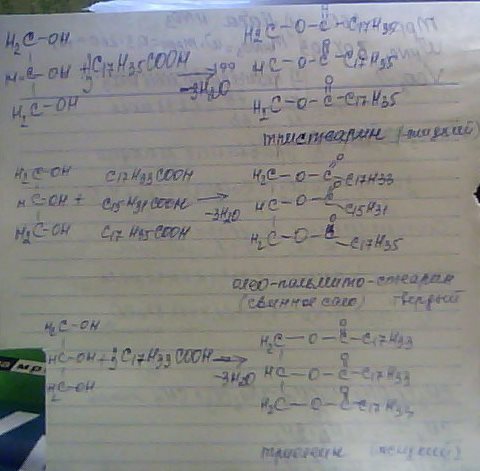 H₂C-OH
HC-OH + 3C₁₇H₃₅COOH →
-3H₂O
H₂C-OH
H₂C-O-C-C₁₇H₃₅
O
HC-O-C-C₁₇H₃₅
O
H₂C-O-C-C₁₇H₃₅
тристеарин (-жидкий)
H₂C-OH C₁₇H₃₃COOH
HC-OH + C₁₅H₃₁COOH →
-3H₂O
H₂C-OH C₁₇H₃₅COOH
O
H₂C-O-C-C₁₇H₃₃
O
HC-O-C-C₁₅H₃₁
O
H₂C-O-C-C₁₇H₃₅
олео-пальмито-стеарин
(свинное сало) твердый
H₂C-OH
HC-OH + 3C₁₇H₃₃COOH →
-3H₂O
H₂C-OH
O
H₂C-O-C-C₁₇H₃₃
O
HC-O-C-C₁₇H₃₃
O
H₂C-O-C-C₁₇H₃₃
триолеин (жидкий)